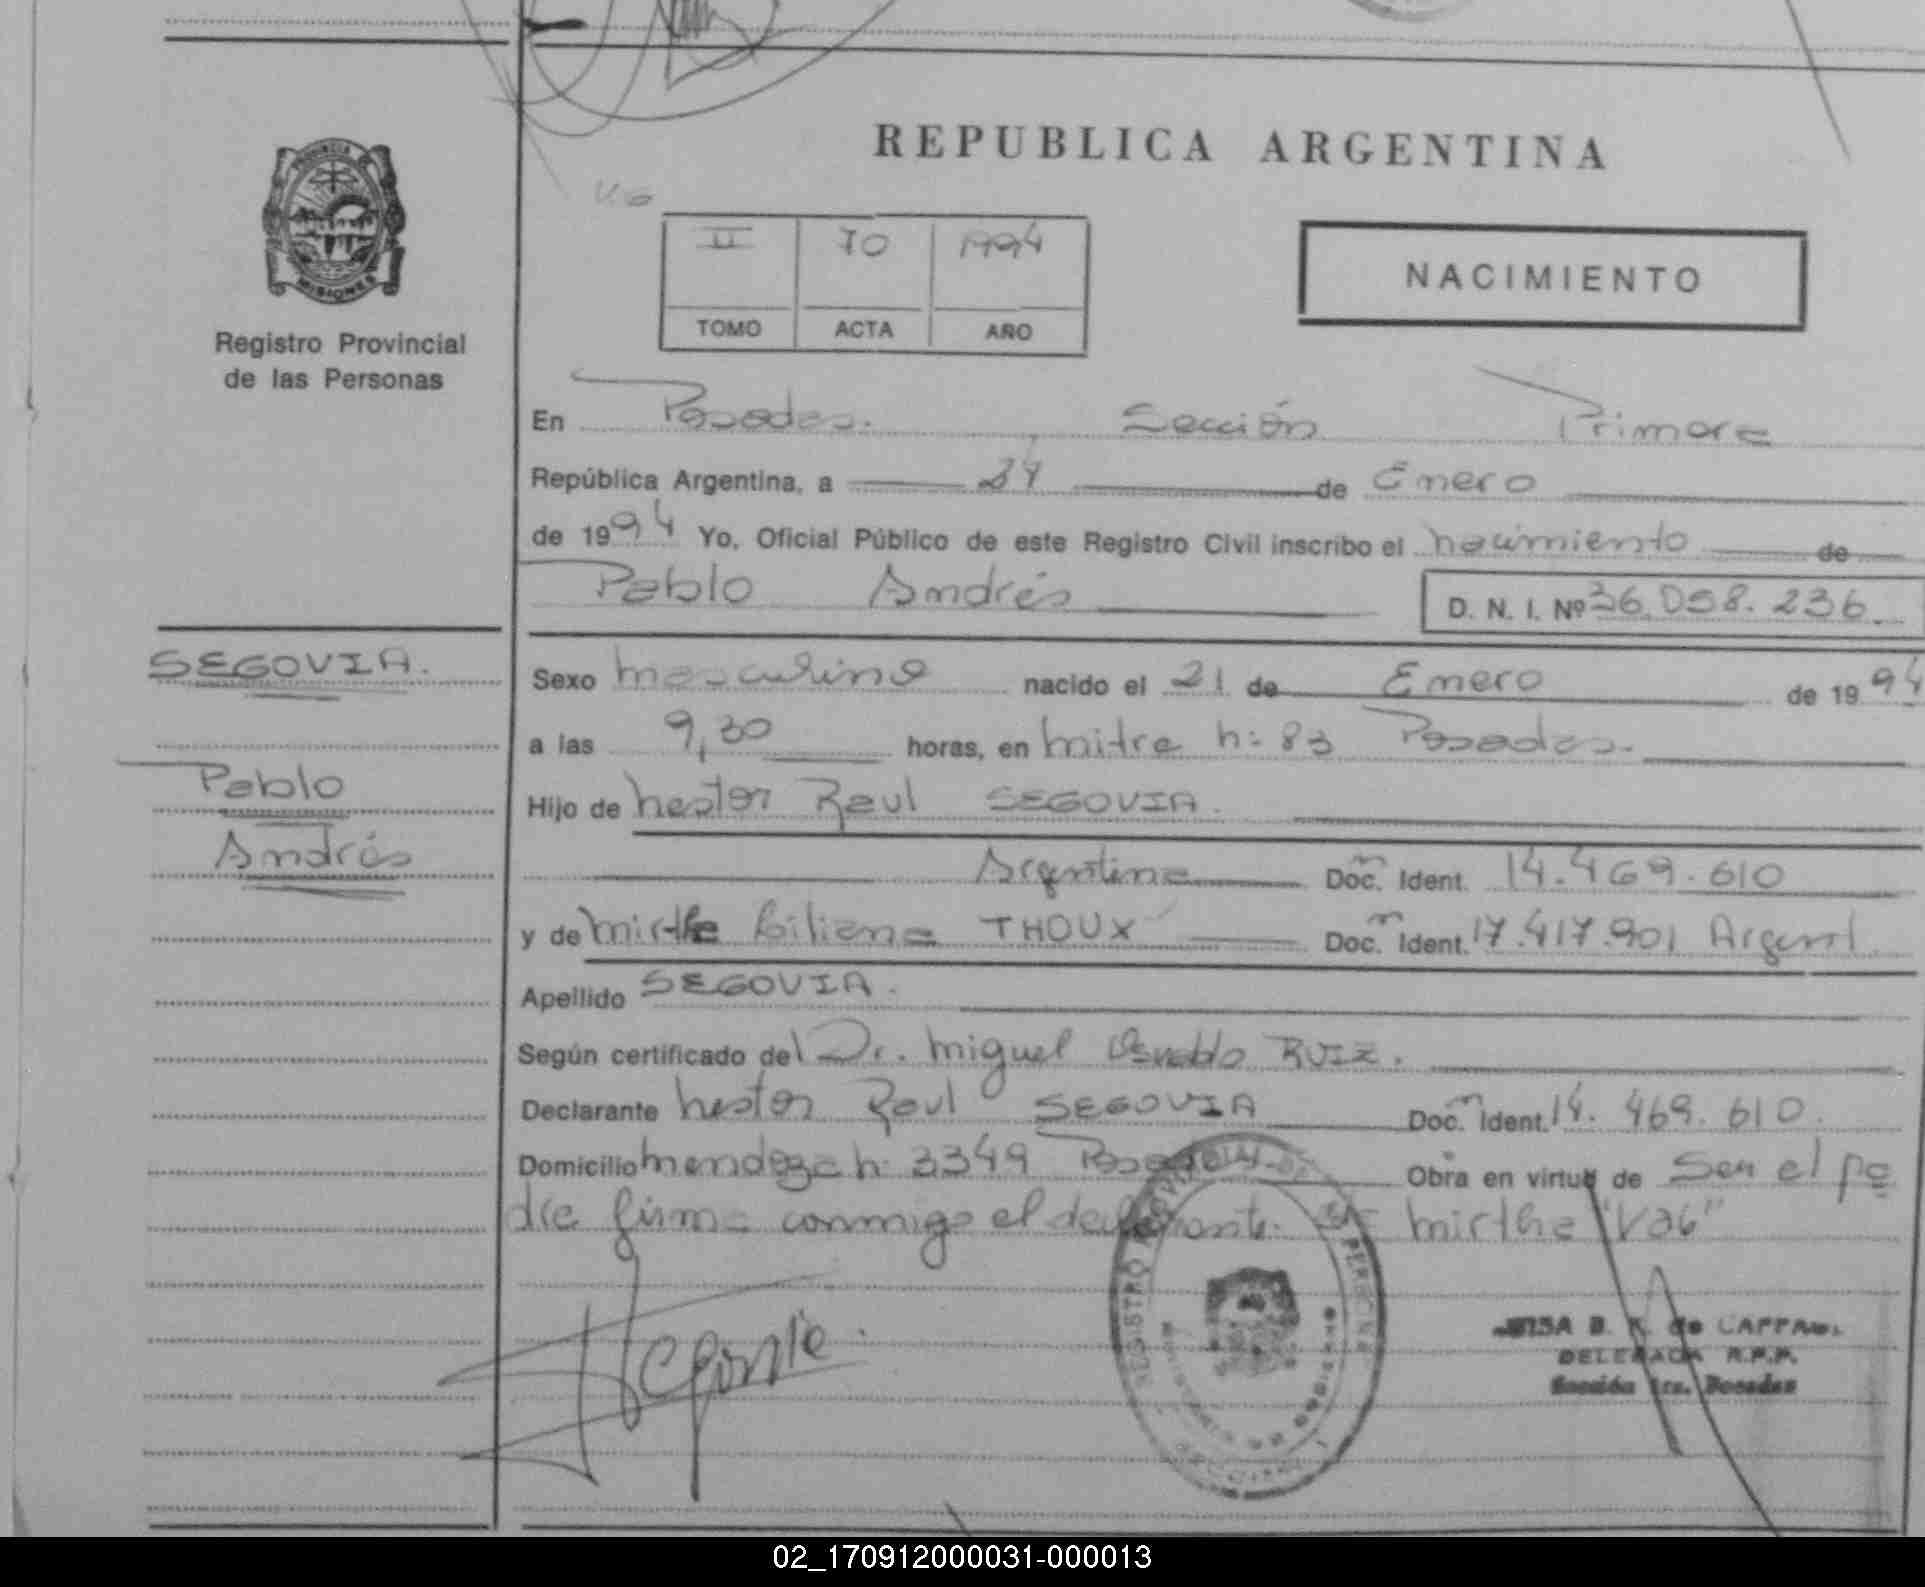 REPUBLICA ARGENTINA
PROVINCIA DE
MISIONES
Registro Provincial
de las Personas
II 70 1994
TOMO ACTA AÑO
NACIMIENTO
En Posadas. Sección Primera
República Argentina, a 24 de Enero
de 1994 Yo, Oficial Público de este Registro Civil inscribo el nacimiento de
Pablo Andrés D. N. I. Nº 36.058.236.
SEGOVIA.
Pablo
Andrés
Sexo masculino nacido el 21 de Enero de 1994
a las 9,30 horas, en mitre n: 83 Posadas.
Hijo de hestor Raul SEGOVIA.
Argentina Docm. Ident. 14.469.610
y de mirtha Liliana THOUX Docm. Ident. 17.417.901 Argent.
Apellido SEGOVIA.
Según certificado del Dr. miguel Osvaldo RUIZ.
Declarante hestor Raul SEGOVIA Docm. Ident. 14.469.610.
Domicilio mendoza n: 3349 Posadas Obra en virtud de Ser el pa
dre firma conmigo el declarante. mirtha "Vab"
Segovia
B. K. de
DELEGADA R.P.P.
Sección 1ra. Posadas
02_170912000031-000013